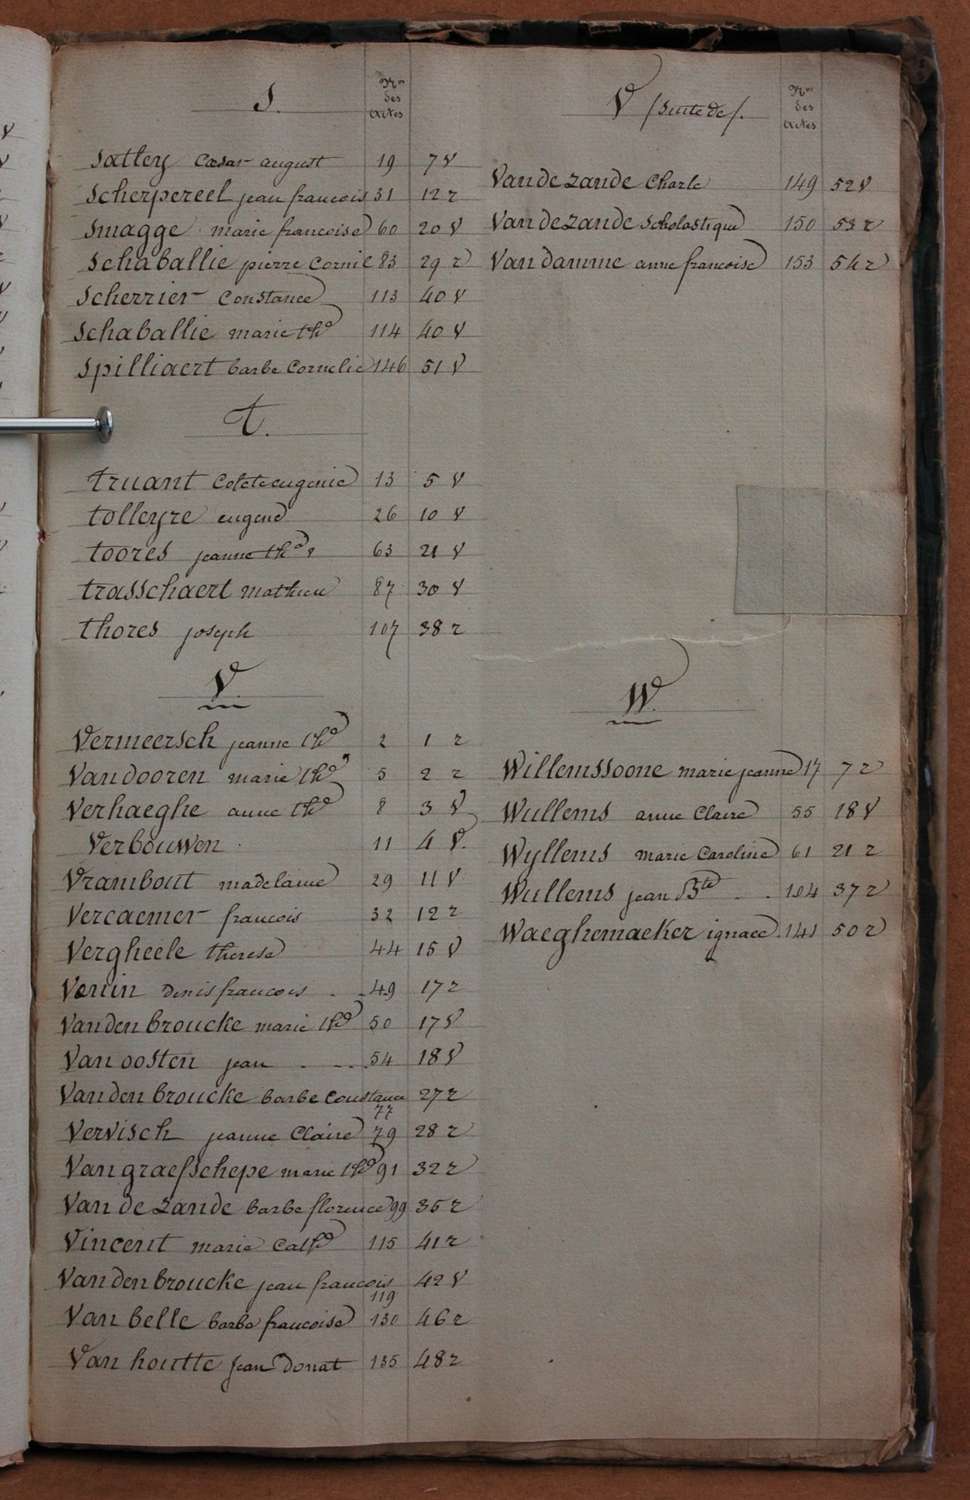 S.
Nos
des
actes
Satley Cæsar august 19 7 V
Scherpereel jean francois 31 12 r
Smagge marie francoise 60 20 V
Schaballie pierre Corniе 83 29 r
Scherrier Constance 113 40 V
Schaballie marie the 114 40 V
Spilliaert barbe Cornelie 146 51 V
t.
truant Colete eugenie 13 5 V
tolleyre eugene 26 10 V
toores jeanne the 63 21 V
trasschaert mathieu 87 30 V
thores joseph 107 38 r
V.
Vermeersch jeanne the 2 1 r
Vandooren marie the 5 2 r
Verhaeghe anne the 8 3 V
Verbouwen 11 4 V.
Vrambout madelaine 29 11 V
Vercaemer francois 32 12 r
Vergheele therese 44 15 V
Venin denis francois 49 17 r
Vanden broucke marie the 50 17 V
Van oosten jean 54 18 V
Vanden broucke barbe Constance 77 27 r
Vervisch jeanne Claire 79 28 r
Van graefschepe marie the 91 32 r
Van de zande barbe florence 99 35 r
Vincent marie Cathe 115 41 r
Vanden broucke jean francois 119 42 V
Van belle barbe francoise 130 46 r
Van houtte jean Donat 135 48 r
V (Suite de).
Nos
des
actes
Van de zande Charle 149 52 V
Van de zande Scholastique 150 53 r
Van damme anne francoise 153 54 r
W.
Willemssoone marie jeanne 17 7 r
Wullems anne Claire 55 18 V
Wyllems marie Caroline 61 21 r
Wullems jean Bte 104 37 r
Waeghemaeker ignace 141 50 r